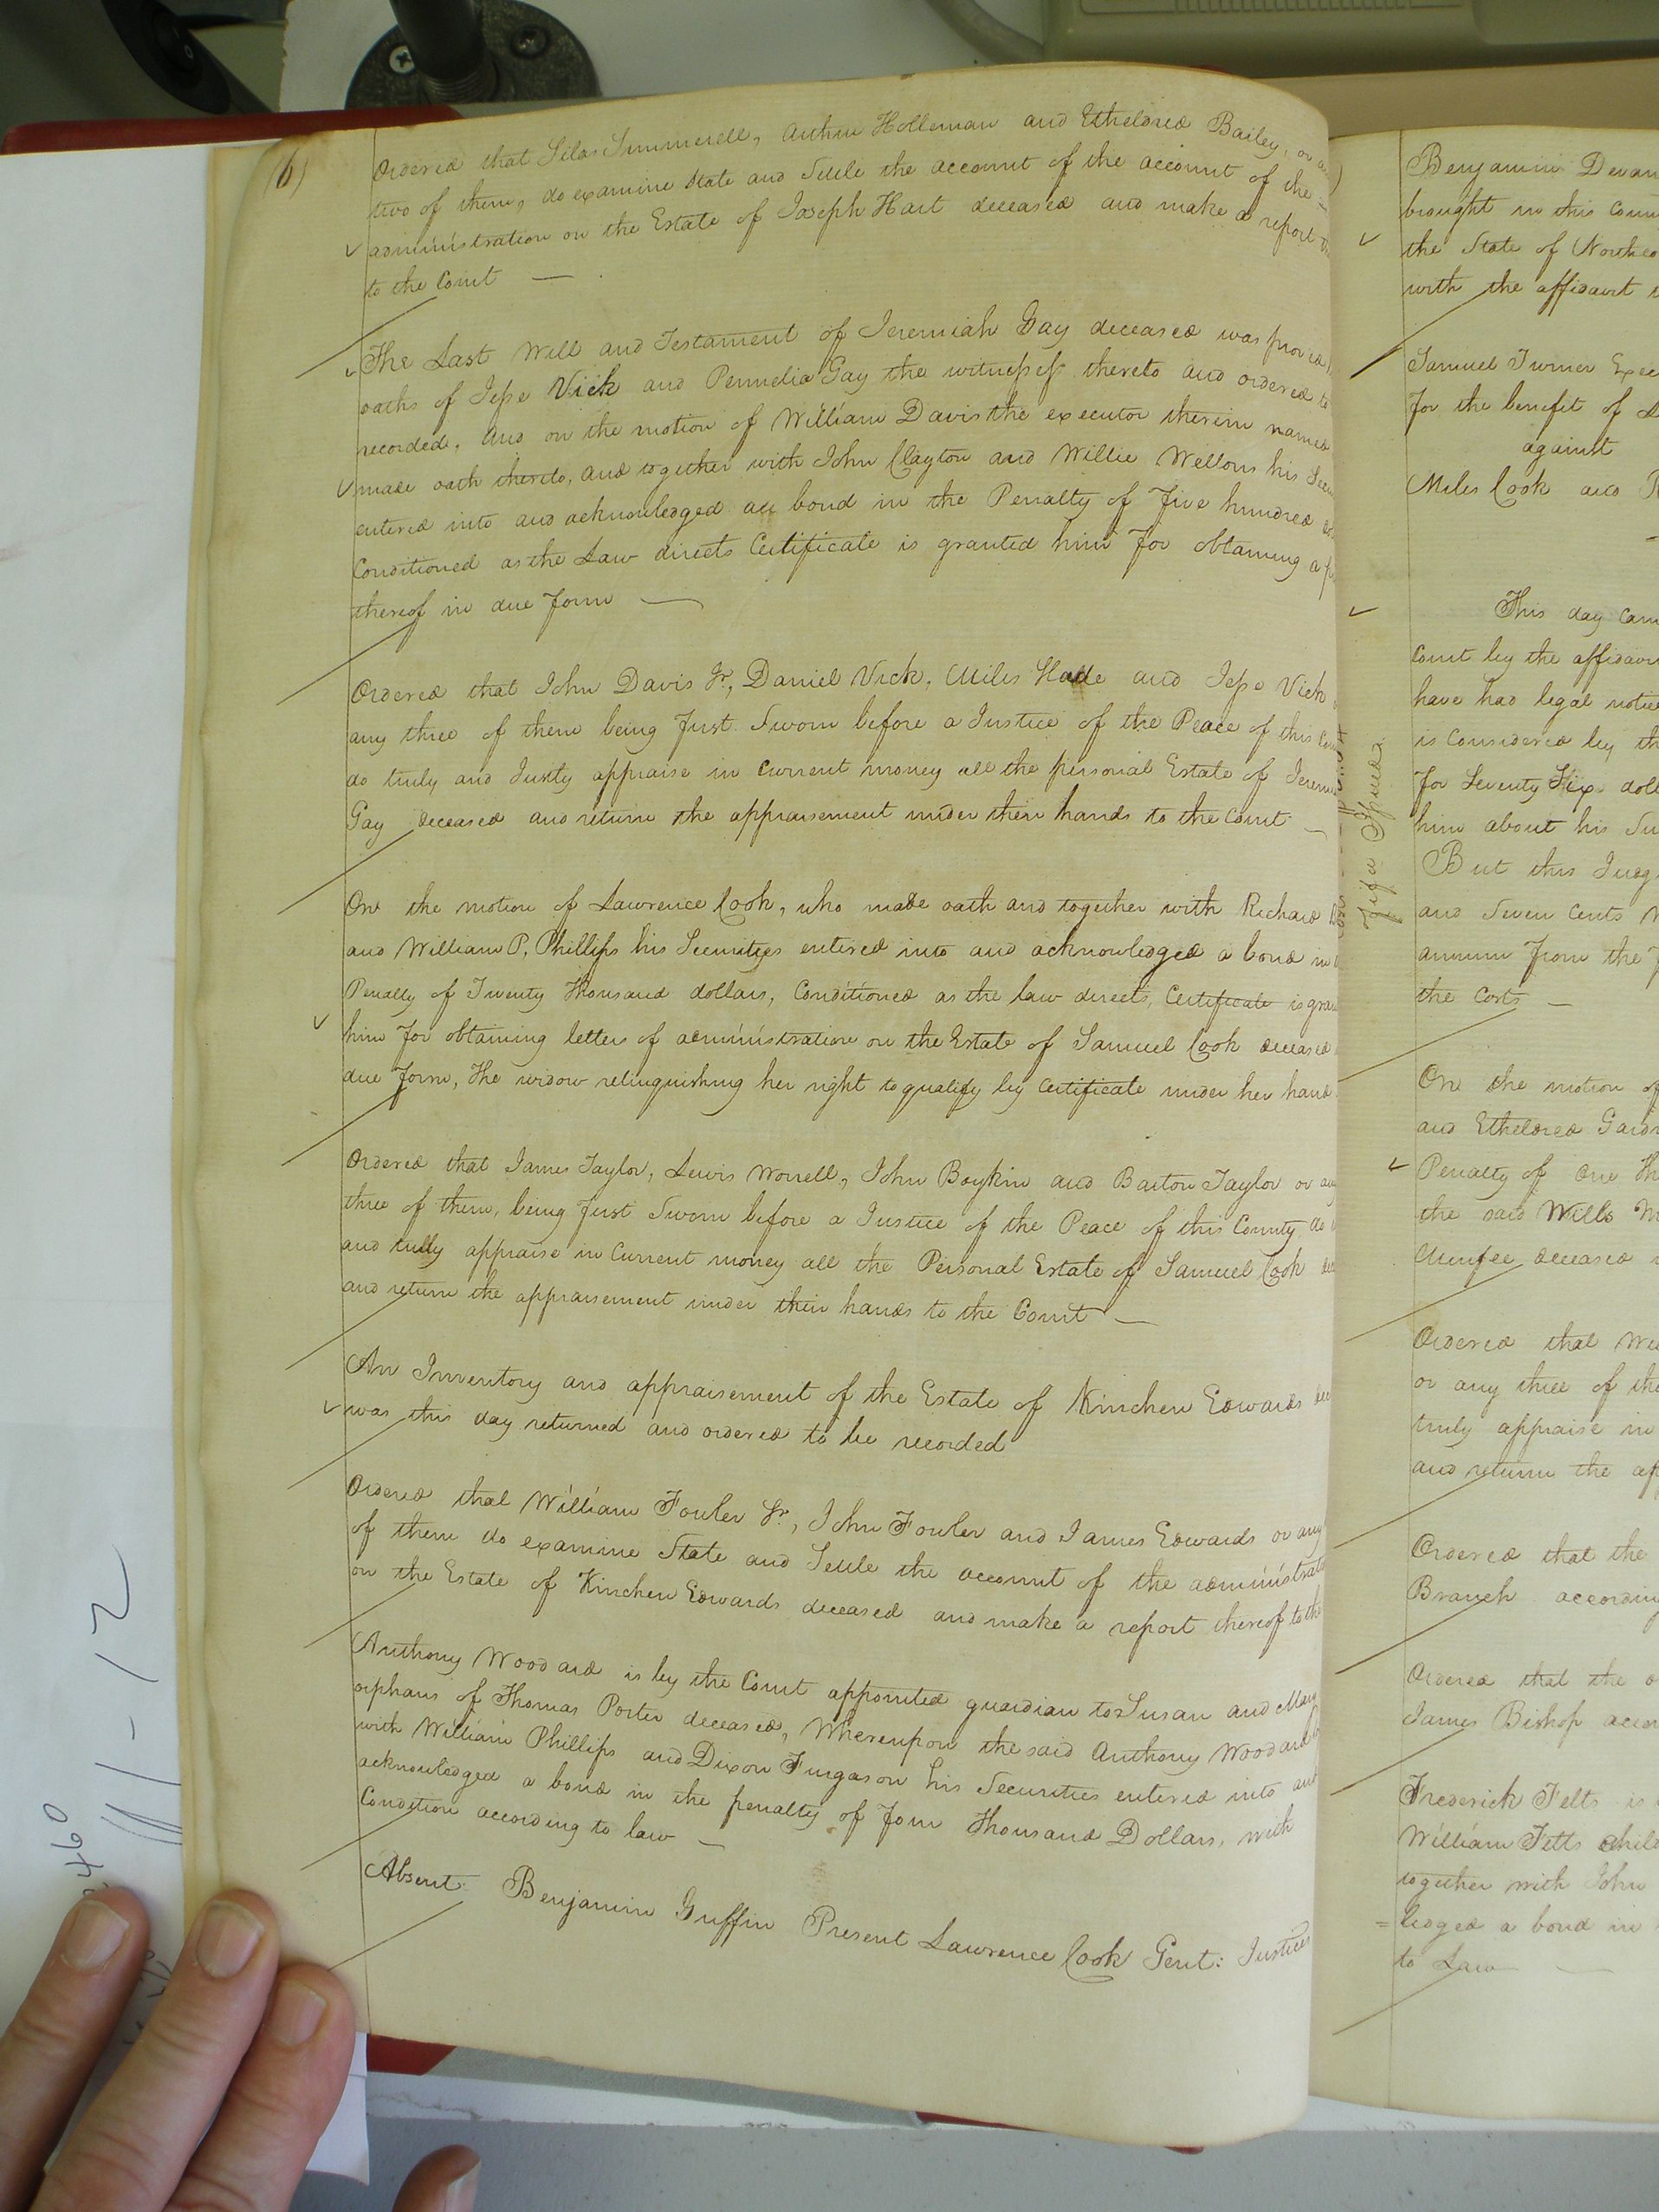 (6)
Ordered that Silas Summerell, Arthur Holleman and Etheldred Bailey, or any
two of them, do examine State and Settle the account of the account of the
administration on the Estate of Joseph Hart deceased and make a report
to the Court —
The Last Will and Testament of Jeremiah Gay deceased was proved
oaths of Jesse Vick and Permelia Gay the witnesses thereto and ordered to
recorded. And on the motion of William Davis the executor therein named
made oath thereto, and together with John Clayton and Willie Wellons his
entered into and acknowledged a bond in the Penalty of Five hundred
Conditioned as the Law directs Certificate is granted him for obtaining a
thereof in due form —
Ordered that John Davis Jr., Daniel Vick, Miles Hade and Jesse Vick
any three of them being first Sworn before a Justice of the Peace of this
do truly and Justly appraise in Current money all the personal Estate of
Gay deceased and return the appraisement under their hands to the Court —
On the motion of Lawrence Cook, who made oath and together with Richard
and William P. Phillips his Securities entered into and acknowledged a bond in
Penalty of Twenty Thousand dollars, Conditioned as the law directs, Certificate is
him for obtaining letters of administration on the Estate of Samuel Cook deceased
due form, The widow relinquishing her right to qualify by Certificate under her hand
Ordered that James Taylor, Lewis Worrell, John Boykin and Barton Taylor or any
three of them, being first Sworn before a Justice of the Peace of this County do
and truly appraise in Current money all the Personal Estate of Samuel Cook
and return the appraisement under their hands to the Court —
An Inventory and appraisement of the Estate of Kinchen Edwards
was this day returned and ordered to be recorded
Ordered that William Fowler Sr., John Fowler and James Edwards or any
of them do examine State and Settle the account of the administrat
on the Estate of Kinchen Edwards deceased and make a report thereof to the
Anthony Woodard is by the Court appointed guardian to Susan and Mary
orphans of Thomas Porter deceased, Whereupon the said Anthony Woodard
with William Phillips and Dixon Furgason his Securities entered into and
acknowledged a bond in the penalty of four Thousand Dollars, with
Condition according to law —
Absent Benjamin Griffin Present Lawrence Cook Gent: Justices
Benjamin Devan
brought in this
the State of
with the affidavit
Samuel Turner
for the benefit of
against
Miles Cook and
This day
Court by the
have had legal notice
is Considered by
for Seventy Six
him about his
But this
and Seven Cents
annum from the
the Costs —
On the motion of
and Etheldred
Penalty of One
the said Wills
deceased
Ordered that
or any three of
truly appraise in
and return the
Ordered that the
Branch according
Ordered that the
James Bishop
Frederick Felts is
William Felts
together with John
=ledged a bond in
to Law —
11-12